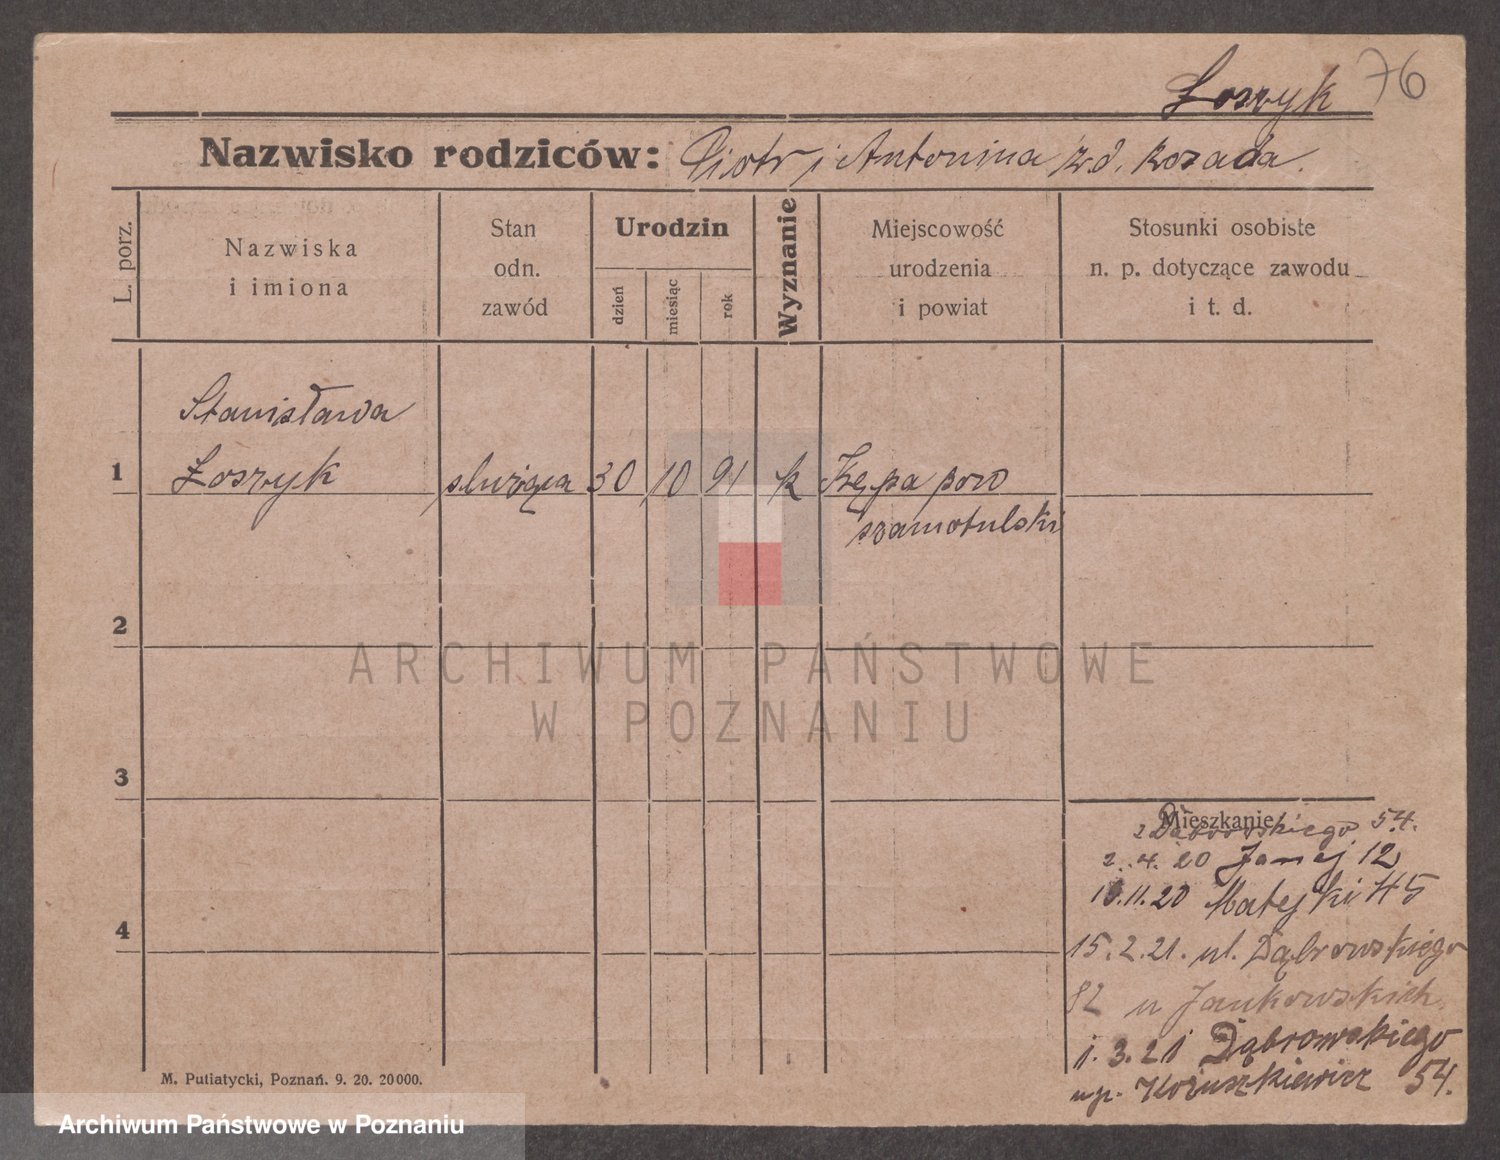 Łoszyk 76
Nazwisko rodziców: Piotr i Antonina zd. Kozada.
L. porz.
Nazwiska
i imiona
Stan
odn.
zawód
Urodzin
dzień
miesiąc
rok
Wyznanie
Miejscowość
urodzenia
i powiat
Stosunki osobiste
n. p. dotyczące zawodu
i t. d.
Stanisława
1 Łoszyk służąca 30 10 91 k Kępa pow
szamotulski
2
ARCHIWUM PAŃSTWOWE
W POZNANIU
3
Mieszkanie
Dąbrowskiego 54.
2.4.20 Jasnej 12
11.20 Matejki 45
4
15.2.21. ul. Dąbrowskiego
82 u Jankowskich.
1.3.21 Dąbrowskiego
u p. Kożuszkiewicz 54.
M. Putiatycki, Poznań. 9. 20. 20000.
Archiwum Państwowe w Poznaniu